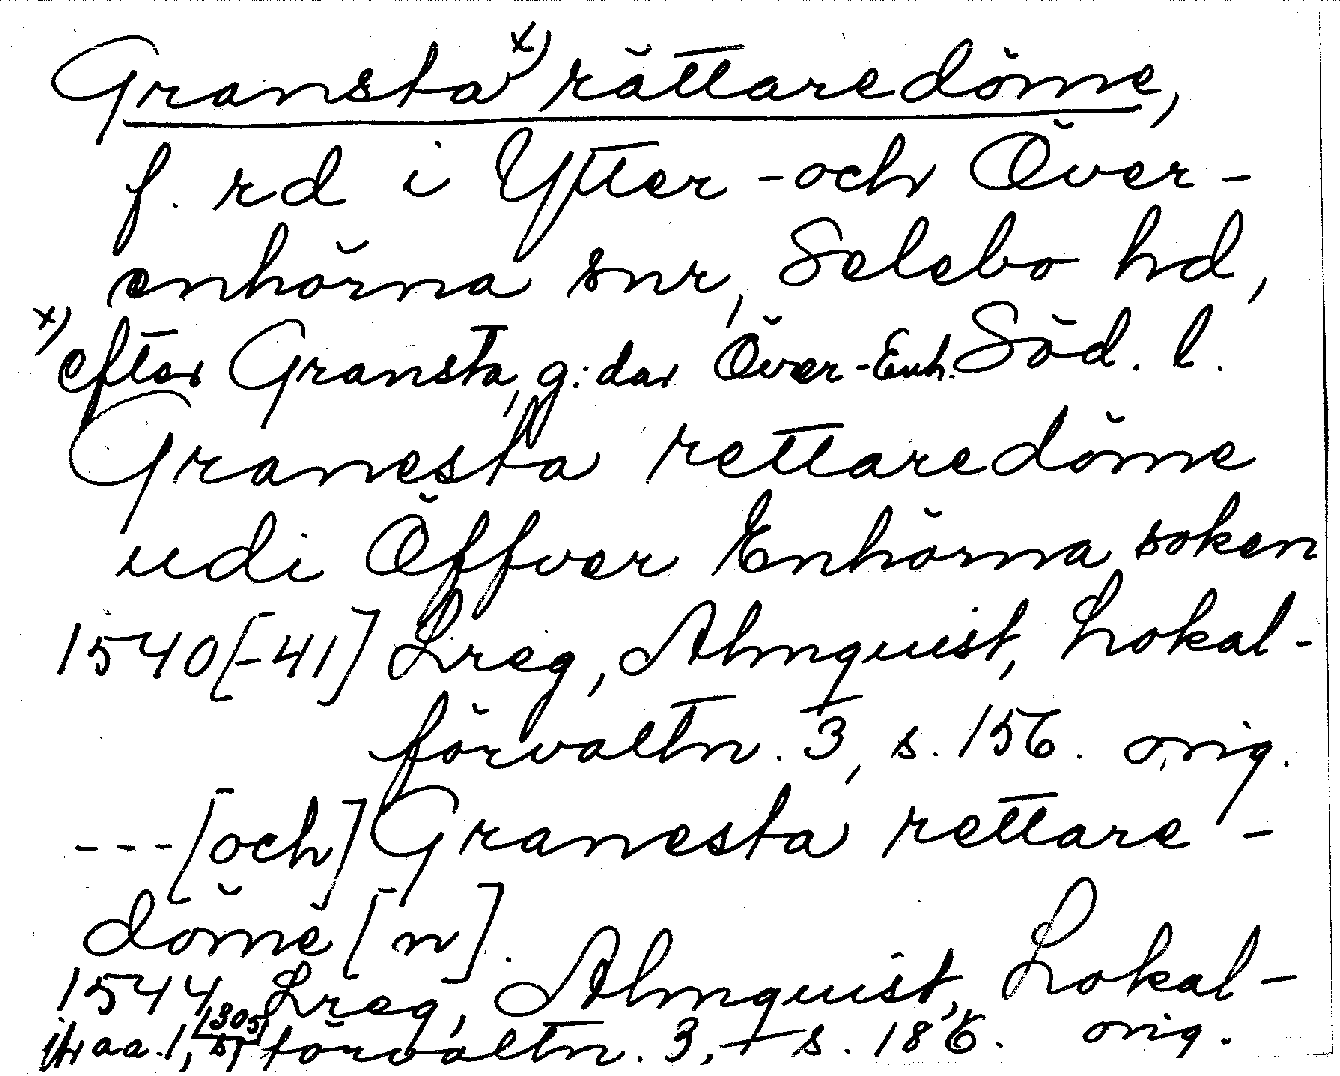 Gransta x) rättaredöme,
f. rd i Ytter- och Över-
enhörna snr, Selebo hd,
Söd. l.
x) efter Gransta, g:dar Över-Enh.
Granesta rettaredöme
udi Öffver Enhörna soken
1540[-41] Lreg, Almquist, Lokal-
förvaltn. 3, s. 156. orig.
---[och] Granesta rettare-
döme[n].
1544 Lreg, Almquist, Lokal-
förvaltn. 3, s. 186. orig.
aa. 1, s. 305